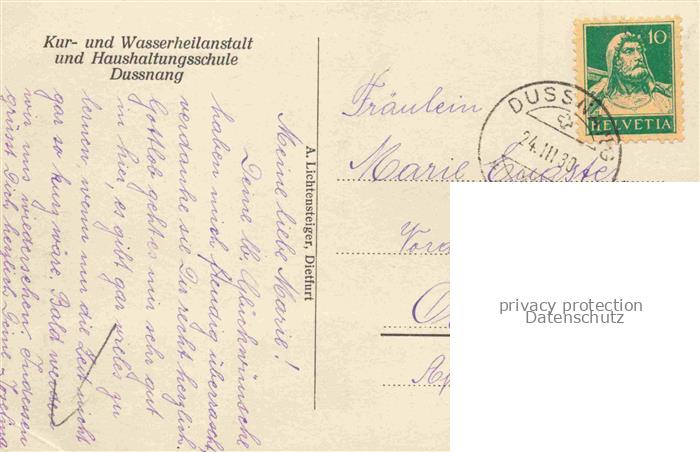 Kur- und Wasserheilanstalt
und Haushaltungsschule
Dussnang
Meine liebe Marie!
Deine lb. Glückwünsche
haben mich freudig überrascht,
verdanke sie Dir recht herzlich.
Gottlob geht es mir sehr gut
hier, es gibt gar vieles zu
lernen, wenn nur die Zeit nicht
gar so kurz wäre. Bald werden
wir uns wiedersehen. Indessen
grüsst Dich herzlich Deine
A. Lichtensteiger, Dietfurt
10
HELVETIA
DUSSNANG
24.III.30
Fräulein
Marie
privacy protection
Datenschutz